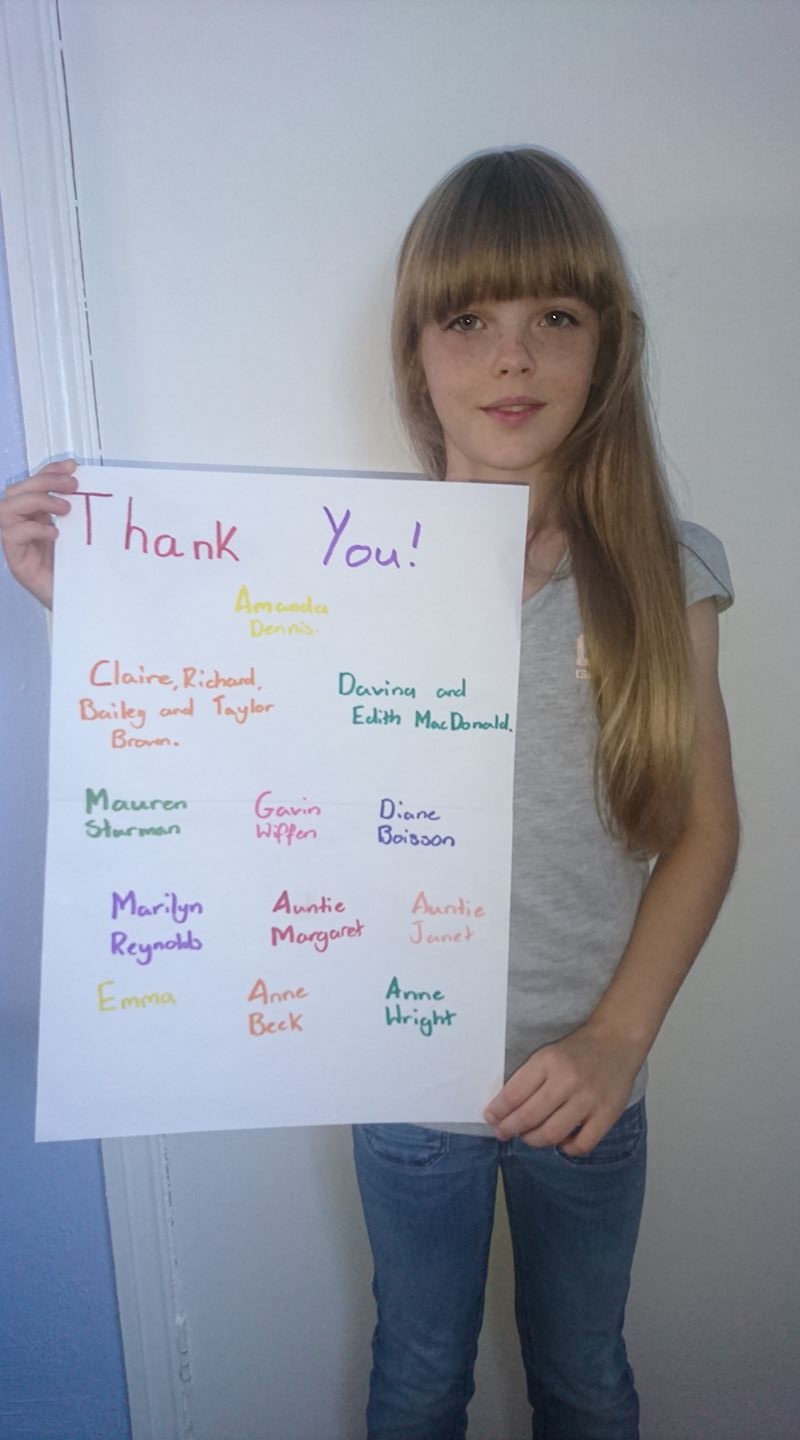 Thank You!
Amanda
Dennis.
Claire, Richard,
Bailey and Taylor
Brown.
Davina and
Edith MacDonald.
Mauren
Sturman
Gavin
Wiffen
Diane
Boisson
Marilyn
Reynolds
Auntie
Margaret
Auntie
Janet
Emma
Anne
Beck
Anne
Wright